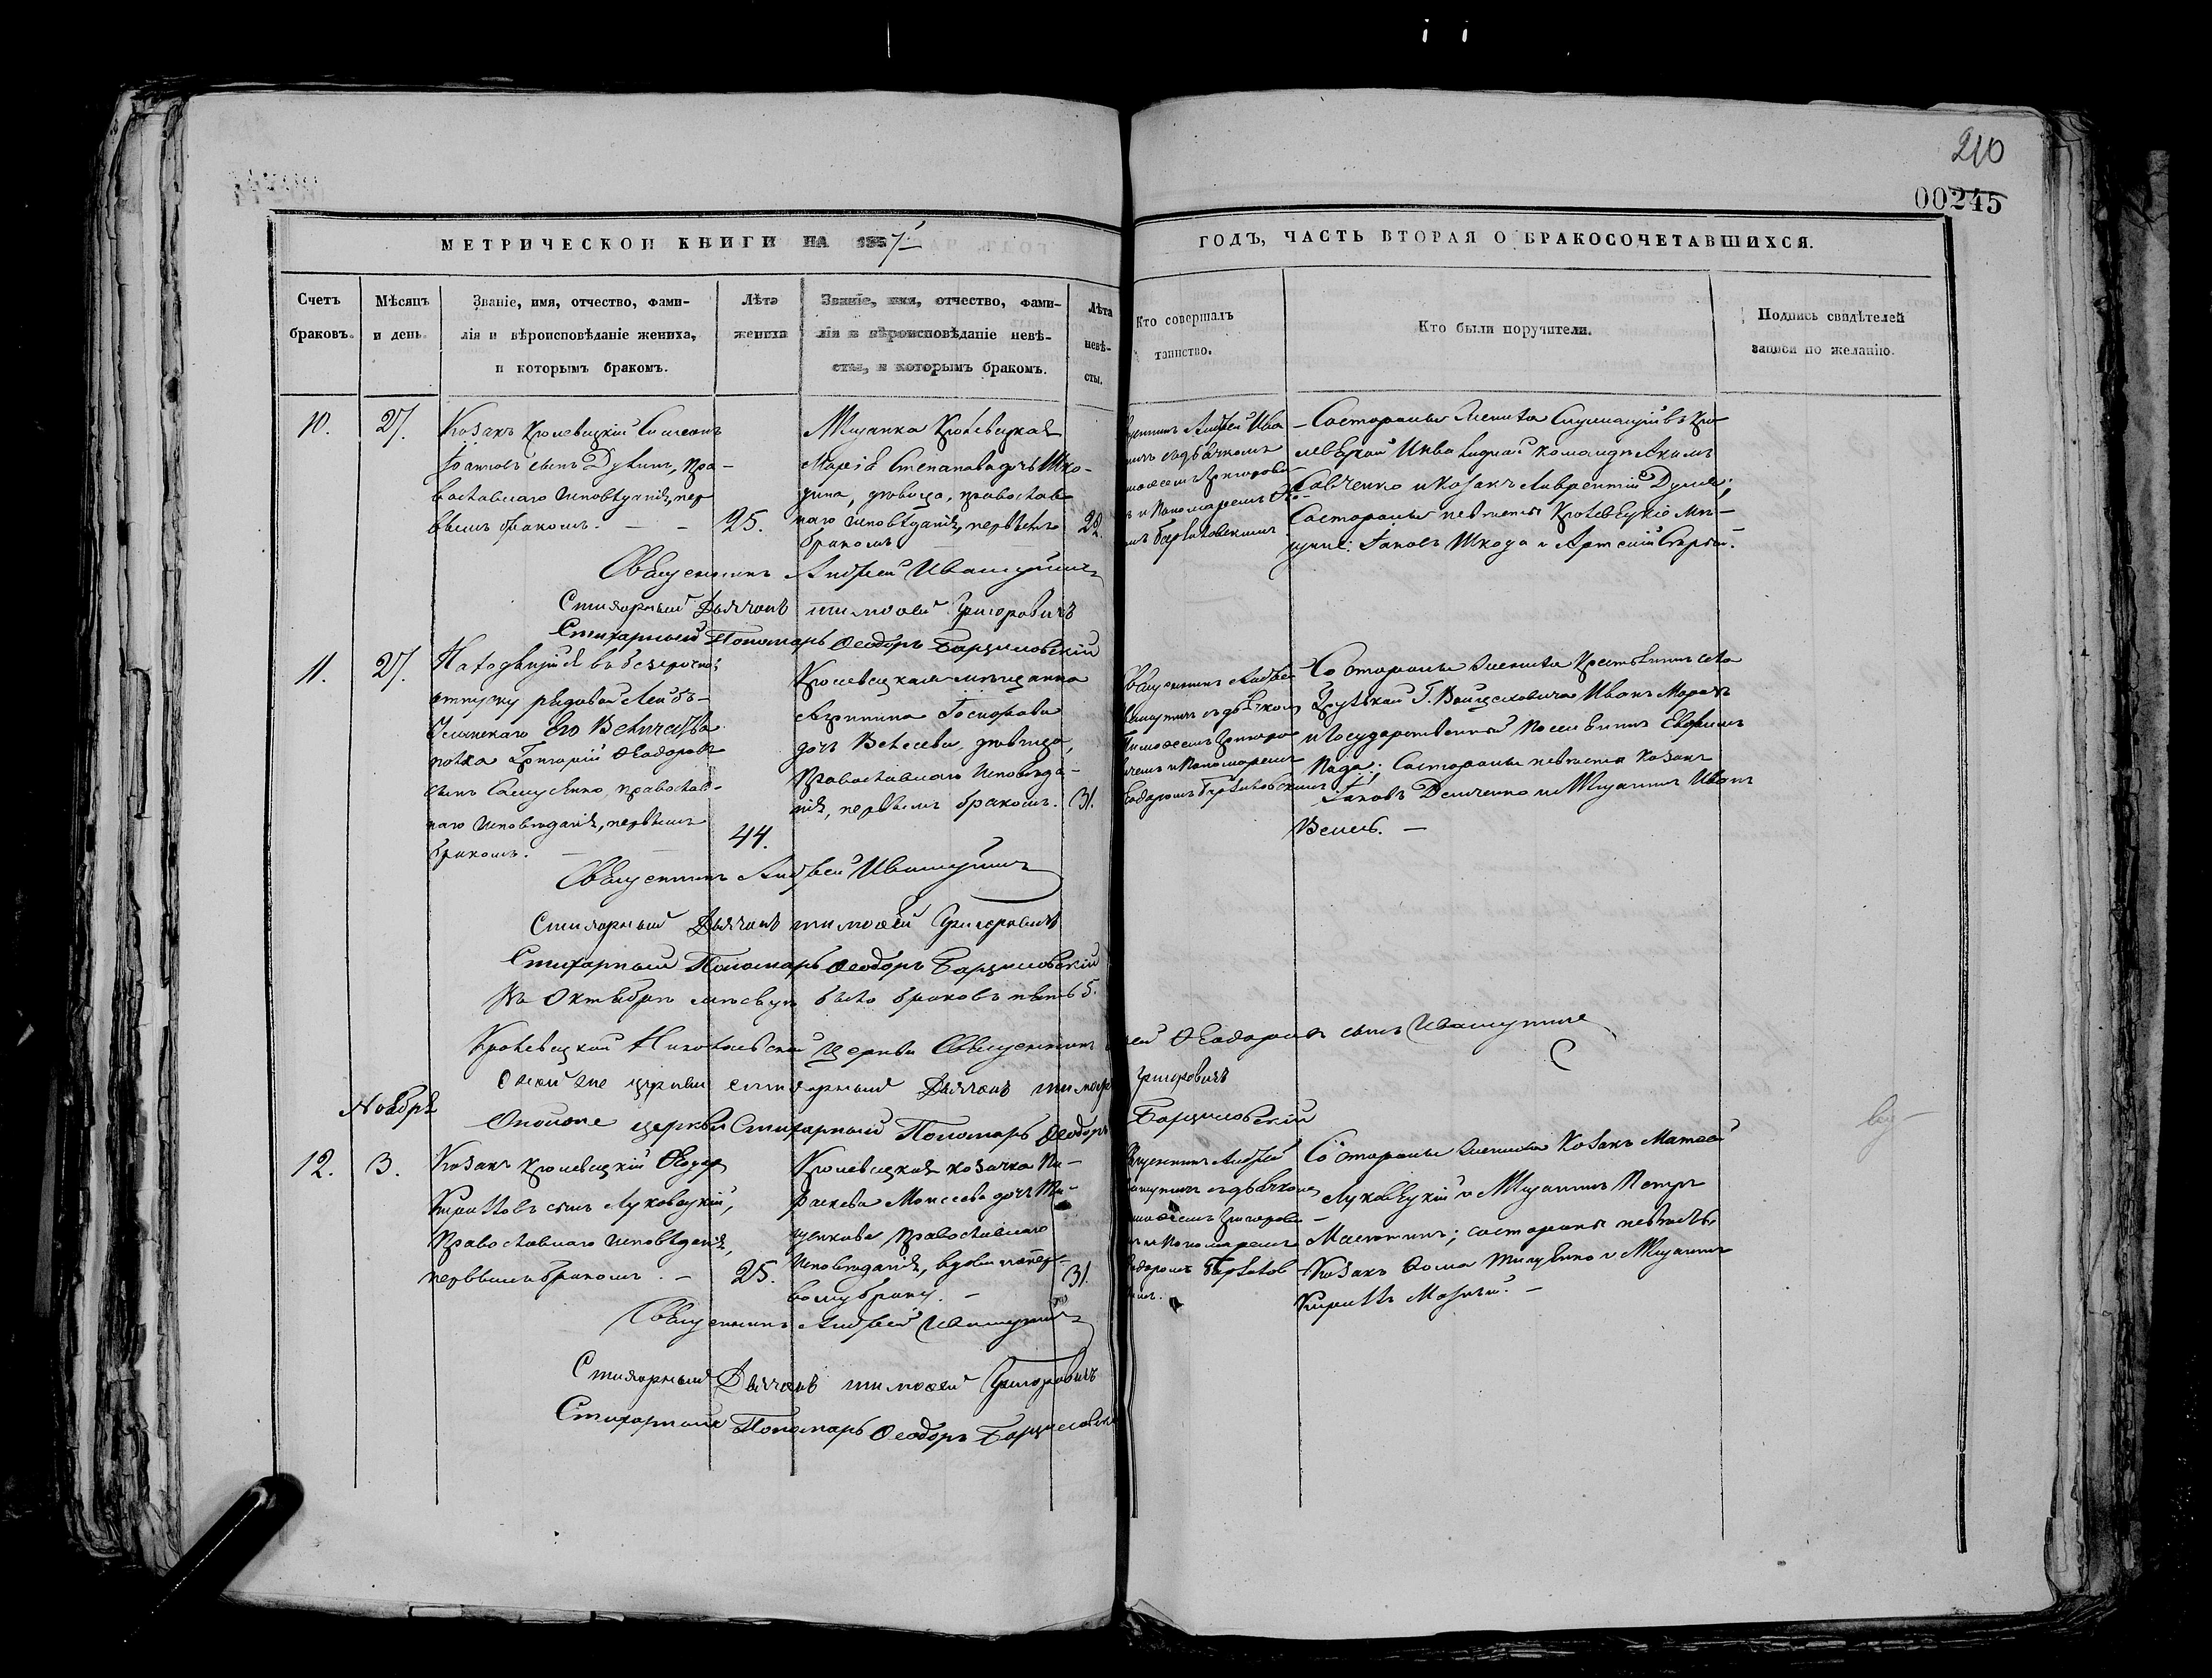 210
00245
МЕТРИЧЕСКОЙ КНИГИ НА 1857
ГОДЪ, ЧАСТЬ ВТОРАЯ О БРАКОСОЧЕТАВШИХСЯ.
Счетъ
браковъ.
Мѣсяцъ
и день.
Званіе, имя, отчество, фами-
лія и вѣроисповѣданіе жениха,
и которымъ бракомъ.
Лѣта
жениха
Званіе, имя, отчество, фами-
лія и вѣроисповѣданіе невѣ-
сты, и которымъ бракомъ.
Лѣта
невѣ-
сты.
Кто совершалъ
таинство.
Кто были поручители.
Подпись свидѣтелей
записи по желанію.
10.
27.
Козакъ Кролевецкій Симеонъ
Іоанновъ сынъ, пра-
вославнаго исповѣданія, пер-
вымъ бракомъ.
25.
Мѣщанка Кролевецкая
Марія Степанова дочь Шко-
дина, дѣвица, православ
наго исповѣданія, первымъ
бракомъ
22.
Андрей Ива
съ дьячкомъ
Григорови-
и Пономаремъ Ѳе-
Со стороны жениха Служащій въ Кро
левецкой Инвалидной командѣ Акимъ
Савченко и Козакъ Лаврентій
Со стороны невѣсты Кролевецкіе Мѣ-
щане: Іаковъ Шкода и
Священникъ Андрей Ивашутинъ
Стихарный Дьячокъ Тимоѳей Григоровичъ
Стихарный Пономарь Ѳеодоръ Барзиловскій
11.
27.
Находящійся въ безсрочномъ
отпуску рядовой Лейбъ-
Уланскаго Его Величества
полка Григорій Ѳеодоровъ
сынъ Самусенко, православ-
наго исповѣданія, первымъ
бракомъ.
44.
Кролевецкая мѣщанка
дочь, дѣвица,
Православнаго исповѣда-
нія, первымъ бракомъ.
31.
Священникъ Андрей
Ивашутинъ съ дьячкомъ
Тимоѳеемъ Григоро
вичемъ и Пономаремъ
Со стороны жениха Крестьянинъ села
Иванъ Морозъ
и Государственный Поселянинъ Евфимъ
Со стороны невѣсты Козакъ
Іаковъ Демченко и Мѣщанинъ Иванъ
Священникъ Андрей Ивашутинъ
Стихарный Дьячокъ Тимоѳей Григоровичъ
Стихарный Пономарь Ѳеодоръ Барзиловскій
Въ Октябрѣ мѣсяцѣ было браковъ пять 5.
Кролевецкой Николаевской церкви Священникъ Ѳеодоровъ сынъ Ивашутинъ
Оной же церкви стихарный Дьячокъ Григоровичъ
Оной же церкви Стихарный Пономарь Ѳеодоръ Барзиловскій
Ноябрь
12.
3.
Козакъ Кролевецкій Ѳеодоръ
Кирилловъ сынъ Луковецкій,
Православнаго исповѣданія,
первымъ бракомъ.
25.
Кролевецкая козачка Па-
раскева Моисеева дочь Ти-
щенкова Православнаго
исповѣданія, вдова по пер-
вому браку.
31.
Священникъ Андрей
Ивашутинъ съ дьячкомъ
Тимоѳеемъ Григорови-
и Пономаремъ
Со стороны жениха Козакъ Матвей
Луковецкій и Мѣщанинъ Петръ
Со стороны невѣсты
Козакъ Ѳома Тищенко и Мѣщанинъ
Кириллъ
Священникъ Андрей Ивашутинъ
Стихарный Дьячокъ Тимоѳей Григоровичъ
Стихарный Пономарь Ѳеодоръ Барзиловскій